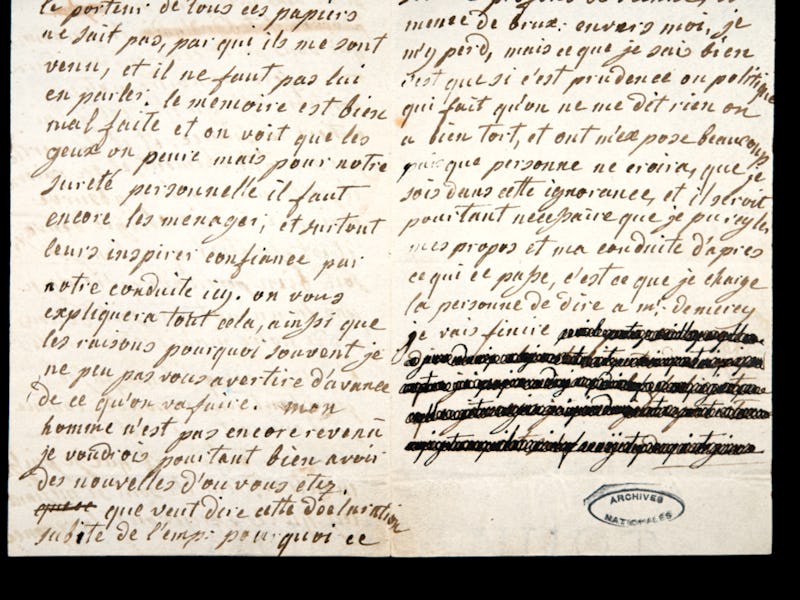 le porteur de tous ces papiers
ne sait pas, par qui ils me sont
venu, et il ne faut pas lui
en parler. le memoire est bien
mal faite et on voit que les
geux on peure mais pour notre
sureté personnelle il faut
encore les menager, et surtout
leurs inspirer confiance par
notre conduite icy. on vous
expliquera tout cela, ainsi que
les raisons pourquoi souvent je
ne peu pas vous avertire d'avance
de ce qu'on va faire. mon
homme n'est pas encore revenu
je voudrois pourtant bien avoir
des nouvelles d'ou vous étez.
que veut dire cette déclaration
subite de l'emp: pourquoi ce
de brux: envers moi, je
m'y perd, mais ce que je sais bien
c'est que si c'est prudence ou politique
qui fait qu'on ne me dit rien on
a bien tort, et ont m'expose beaucoup
que personne ne croira, que je
sois dans cette ignorance, et il seroit
pourtant necessaire que je puisse regler
mes propos et ma conduite d'apres
ce qui ce passe, c'est ce que je charge
la personne de dire a mr. demercy
je vais finire
ARCHIVES
NATIONALES